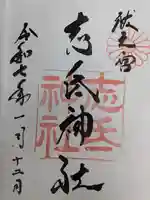 志氐神社
令和七年一月十二日
志氐
神社